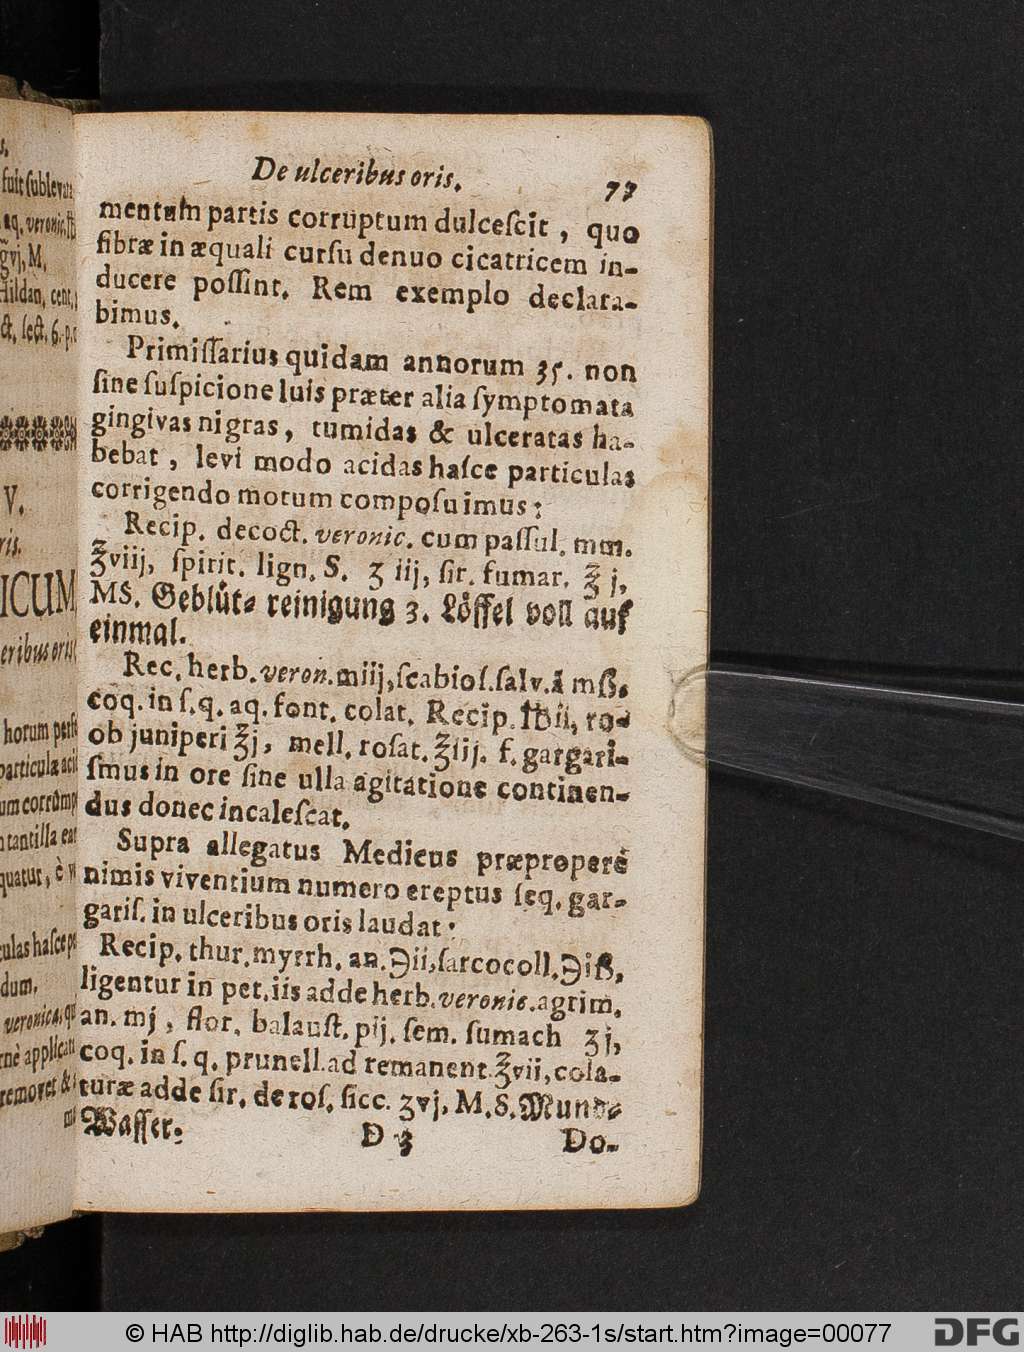 De ulceribus oris. 77
mentum partis corruptum dulcescit, quo
fibræ in æquali cursu denuo cicatricem in-
ducere possint. Rem exemplo declara-
bimus.
Primissarius quidam annorum 35. non
sine suspicione luis præter alia symptomata
gingivas nigras, tumidas & ulceratas ha-
bebat, levi modo acidas hasce particulas
corrigendo motum composuimus:
Recip. decoct. veronic. cum passul. mm.
℥viij, spirit. lign. S. ʒ iij, sir. fumar. ℥ j,
MS. Geblüt- reinigung 3. Löffel voll auf
einmal.
Rec. herb. veron. miij, scabios. salv. ā mß.
coq. in s. q. aq. font. colat. Recip. ℔ii, ro-
ob juniperi ℥j, mell. rosat. ℥iij. f. gargari-
smus in ore sine ulla agitatione continen-
dus donec incalescat.
Supra allegatus Medicus præproperè
nimis viventium numero ereptus seq. gar-
garis. in ulceribus oris laudat:
Recip. thur. myrrh. an. ℈ii, sarcocoll. ℈iß,
ligentur in pet. iis adde herb. veronic. agrim.
an. mj, flor. balaust. pij. sem. sumach ʒj,
coq. in s. q. prunell. ad remanent. ℥vii, cola-
turæ adde sir. de ros. sicc. ʒvj, M. S. Mund-
Wasser.
D 3 Do-
s.
fuit sublevata
aq. veronic. ℔
℥vj, M.
Hildan. cent.
ct. sect. 6. p.
V.
ris.
ICUM
eribus oris
horum perf
particulæ aci
um corrump
tantilla ea
quatur, è v
culas hasce p
dum.
veronica, qu
rnè applicat
removet &
© HAB http://diglib.hab.de/drucke/xb-263-1s/start.htm?image=00077 DFG